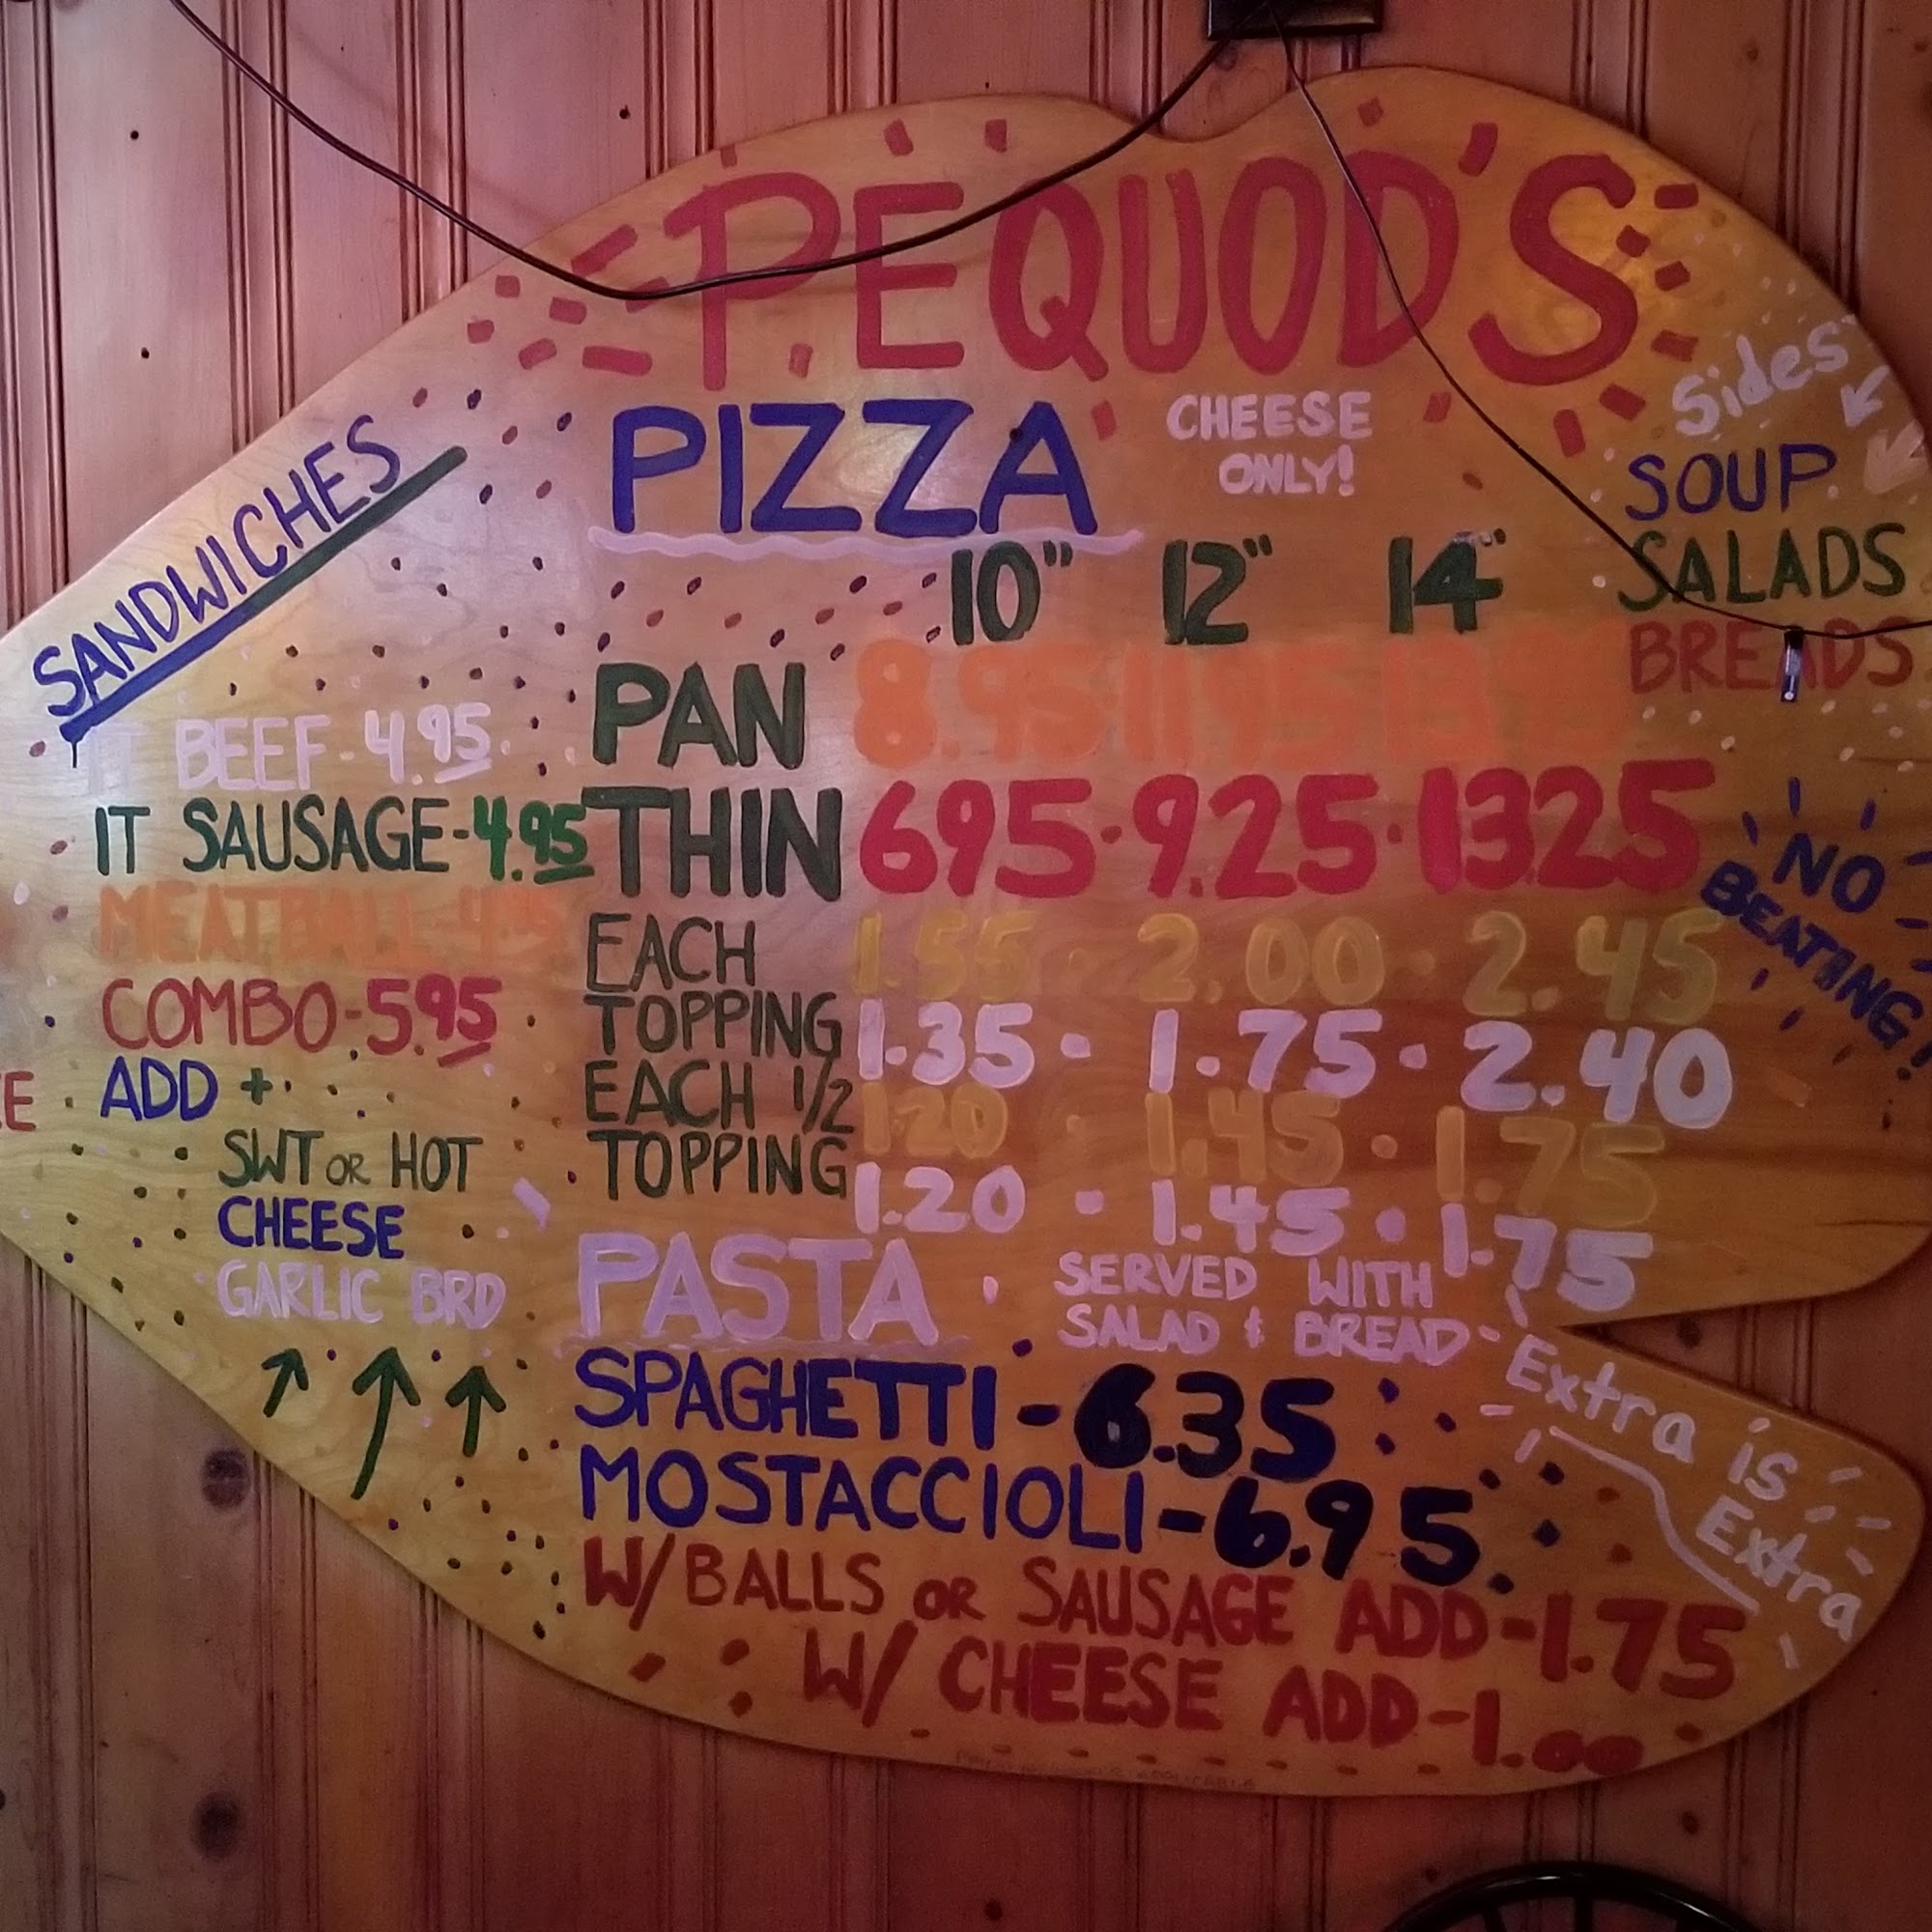 PEQUOD'S
PIZZA
CHEESE
ONLY!
10" 12" 14"
PAN 8.95 11.95
THIN 695·9.25·1325
EACH
TOPPING
1.55 · 2.00 · 2.45
1.35 · 1.75 · 2.40
EACH 1/2
TOPPING
1.20 · 1.45 · 1.75
1.20 · 1.45 · 1.75
SANDWICHES
IT BEEF-4.95
IT SAUSAGE-4.95
MEATBALL-4.95
COMBO-5.95
ADD +
SWT OR HOT
CHEESE
GARLIC BRD
PASTA
SERVED WITH
SALAD & BREAD
SPAGHETTI-6.35
MOSTACCIOLI-6.95
W/BALLS OR SAUSAGE ADD-1.75
W/ CHEESE ADD-1.00
Sides
SOUP
SALADS
BREADS
NO
BEATING!
Extra is
Extra